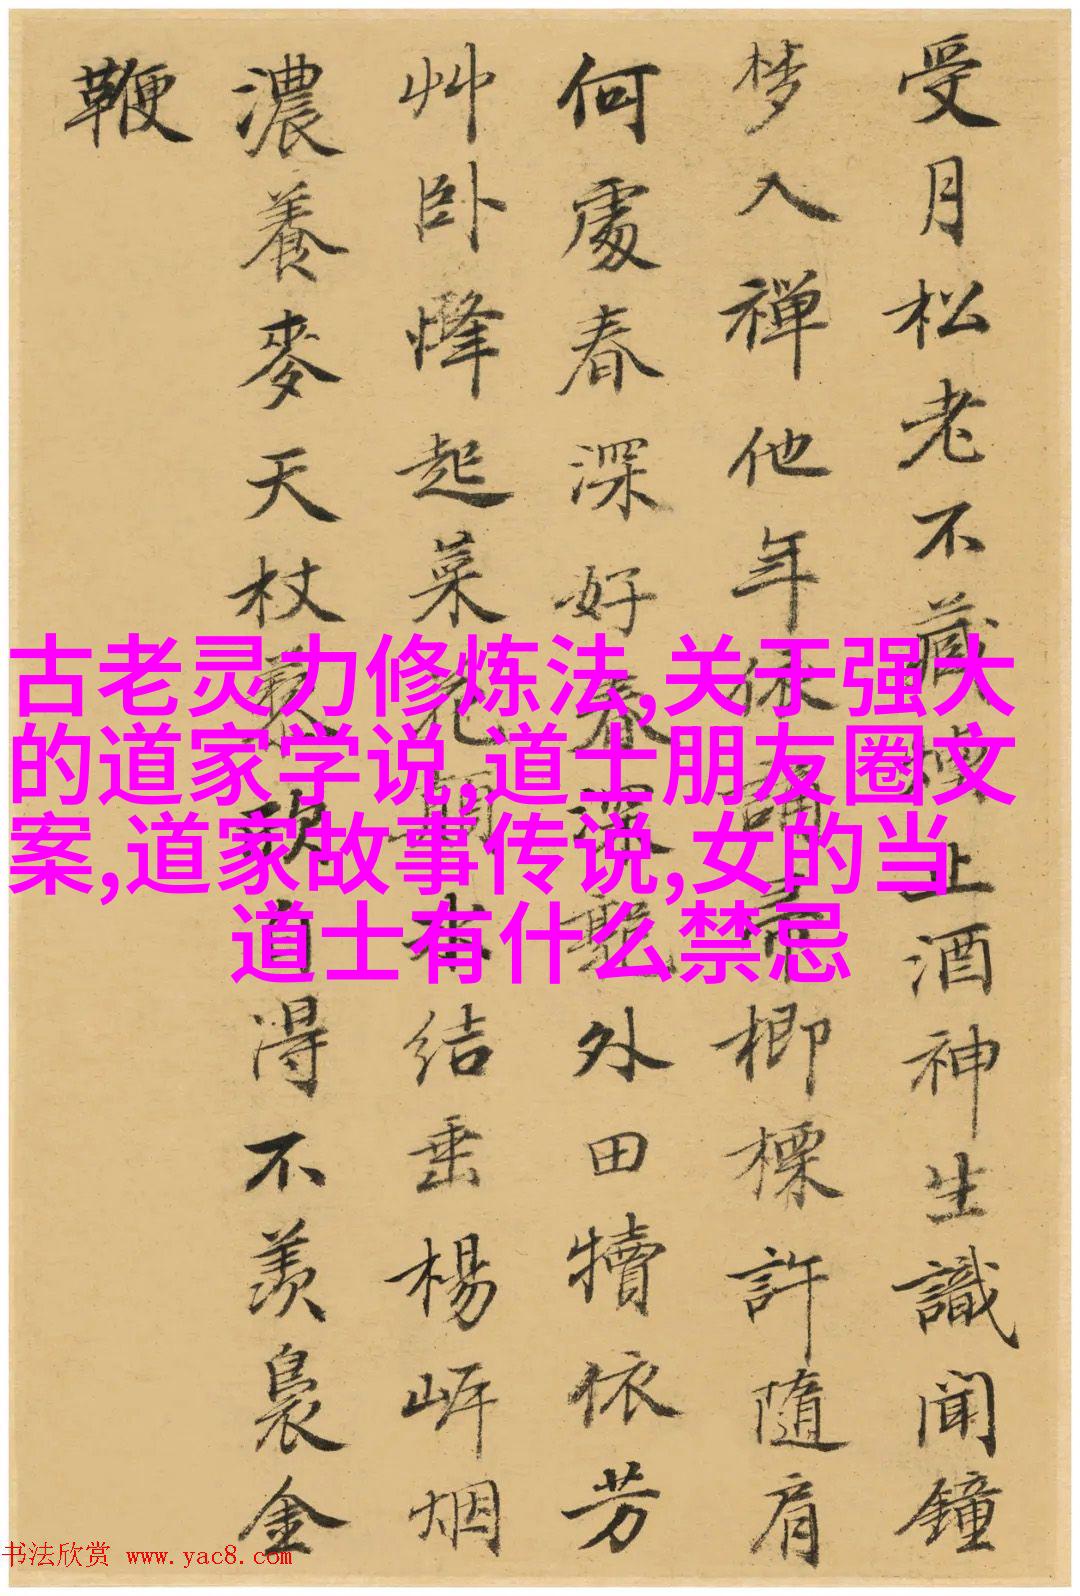 受月松老不藏上酒神生識聞鐘
梦入禅他年休誦楖許隨肩
何處春深好春深外田犢依芳
艸卧蜂起菜花顛結垂楊岍烟
濃養麥天杖藜欣自得不羨裊金
鞭
古老灵力修炼法,关于强大
的道家学说,道士朋友圈文
案,道家故事传说,女的当
道士有什么禁忌
书法欣赏 www.yac8.com